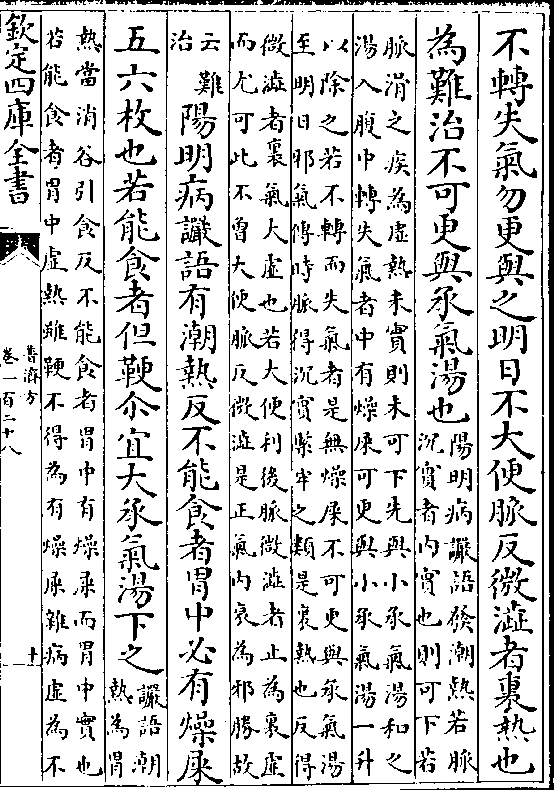 不轉失氣勿更與之明日不大便脈反微澁者裏熱也
為難治不可更與承氣湯也
陽明病讝語發潮熱若脈
沉實者内實也則可下若
脈滑之疾為虛熱未實則未可下先與小承氣湯和之
湯入腹中轉失氣者中有燥屎可更與小承氣湯一升
以除之若不轉而失氣者是無燥屎不可更與承氣湯
至明日邪氣傳時脈得沉實緊牢之類是裏熱也反得
微澁者裏氣大虛也若大便利後脈微澁者止為裏虛
而尤可此不曾大便脈反微澁是正氣内衰為邪勝故
云難
治
陽明病讝語有潮熱反不能食者胃中必有燥屎
五六枚也若能食者但鞕尒宜大承氣湯下之
讝語潮
熱為胃
熱當消谷引食反不能食者胃中有燥屎而胃中實也
若能食者胃中虛熱雖鞕不得為有燥屎雜病虛為不
欽定四庫全書
普濟方
卷一百二十八